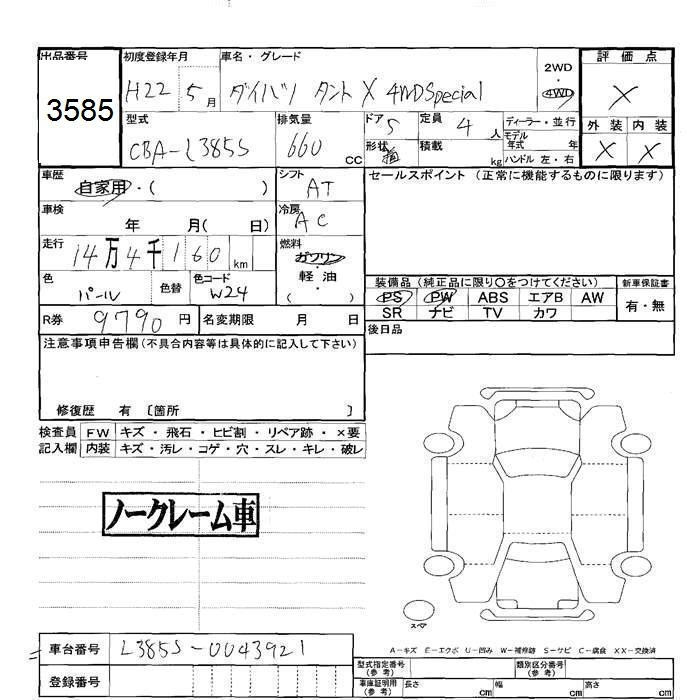 出品番号 初度登録年月 車名・グレード 評価点
3585 H22 5月 ダイハツ タント X 4WD Special 2WD 4WD X
型式 排気量 ドア 定員 ディーラー・並行 外装 内装
CBA-L385S 660cc 5 4人 モデル年式 年 X X
形状 箱 積載 kg ハンドル 左・右
車歴 自家用・( ) シフト AT セールスポイント (正常に機能するものに限ります)
車検 年 月( 日) 冷房 AC
走行 14万4千160km 燃料 ガソリン・軽油・( )
色 パール 色替 色コード W24
装備品 (純正品に限り○をつけてください) 新車保証書
PS PW ABS エアB AW 有・無
SR ナビ TV カワ
R券 9790円 名変期限 月 日 後日品
注意事項申告欄(不具合内容等は具体的に記入して下さい)
修復歴 有 〔箇所 〕
検査員 FW キズ・飛石・ヒビ割・リペア跡・×要
記入欄 内装 キズ・汚レ・コゲ・穴・スレ・キレ・破レ
ノークレーム車
スペア
A-キズ E-エクボ U-凹み W-補修跡 S-サビ C-腐食 XX-交換済
車台番号 L385S-0043921
型式指定番号(参考) 類別区分番号(参考)
登録番号 車庫証明用(参考) 長さ cm 幅 cm 高さ cm